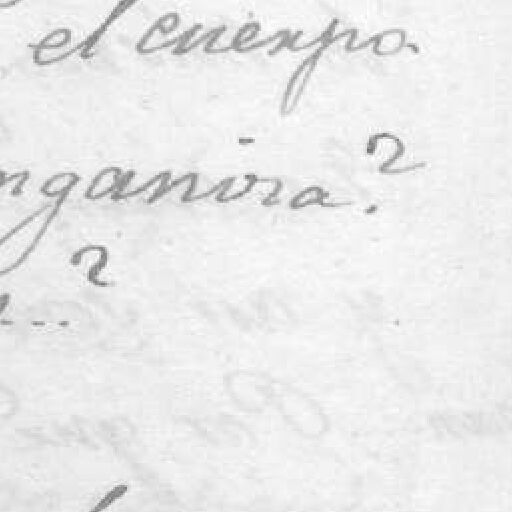 el cuerpo
nganira?
...?